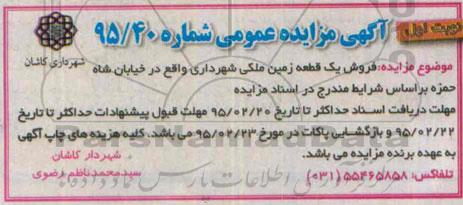 نوبت اول
آگهی مزایده عمومی شماره ۹۵/۴۰
شهرداری کاشان
موضوع مزایده: فروش یک قطعه زمین ملکی شهرداری واقع در خیابان شاه
حمزه براساس شرایط مندرج در اسناد مزایده
مهلت دریافت اسناد حداکثر تا تاریخ ۹۵/۰۲/۲۰ مهلت قبول پیشنهادات حداکثر تا تاریخ
۹۵/۰۲/۲۲ و بازگشایی پاکات در مورخ ۹۵/۰۲/۲۳ می باشد. کلیه هزینه های چاپ آگهی
به عهده برنده مزایده می باشد.
شهردار کاشان
تلفاکس: ۵۵۴۶۵۸۵۸ (۰۳۱)
سیدمحمدناظم رضوی